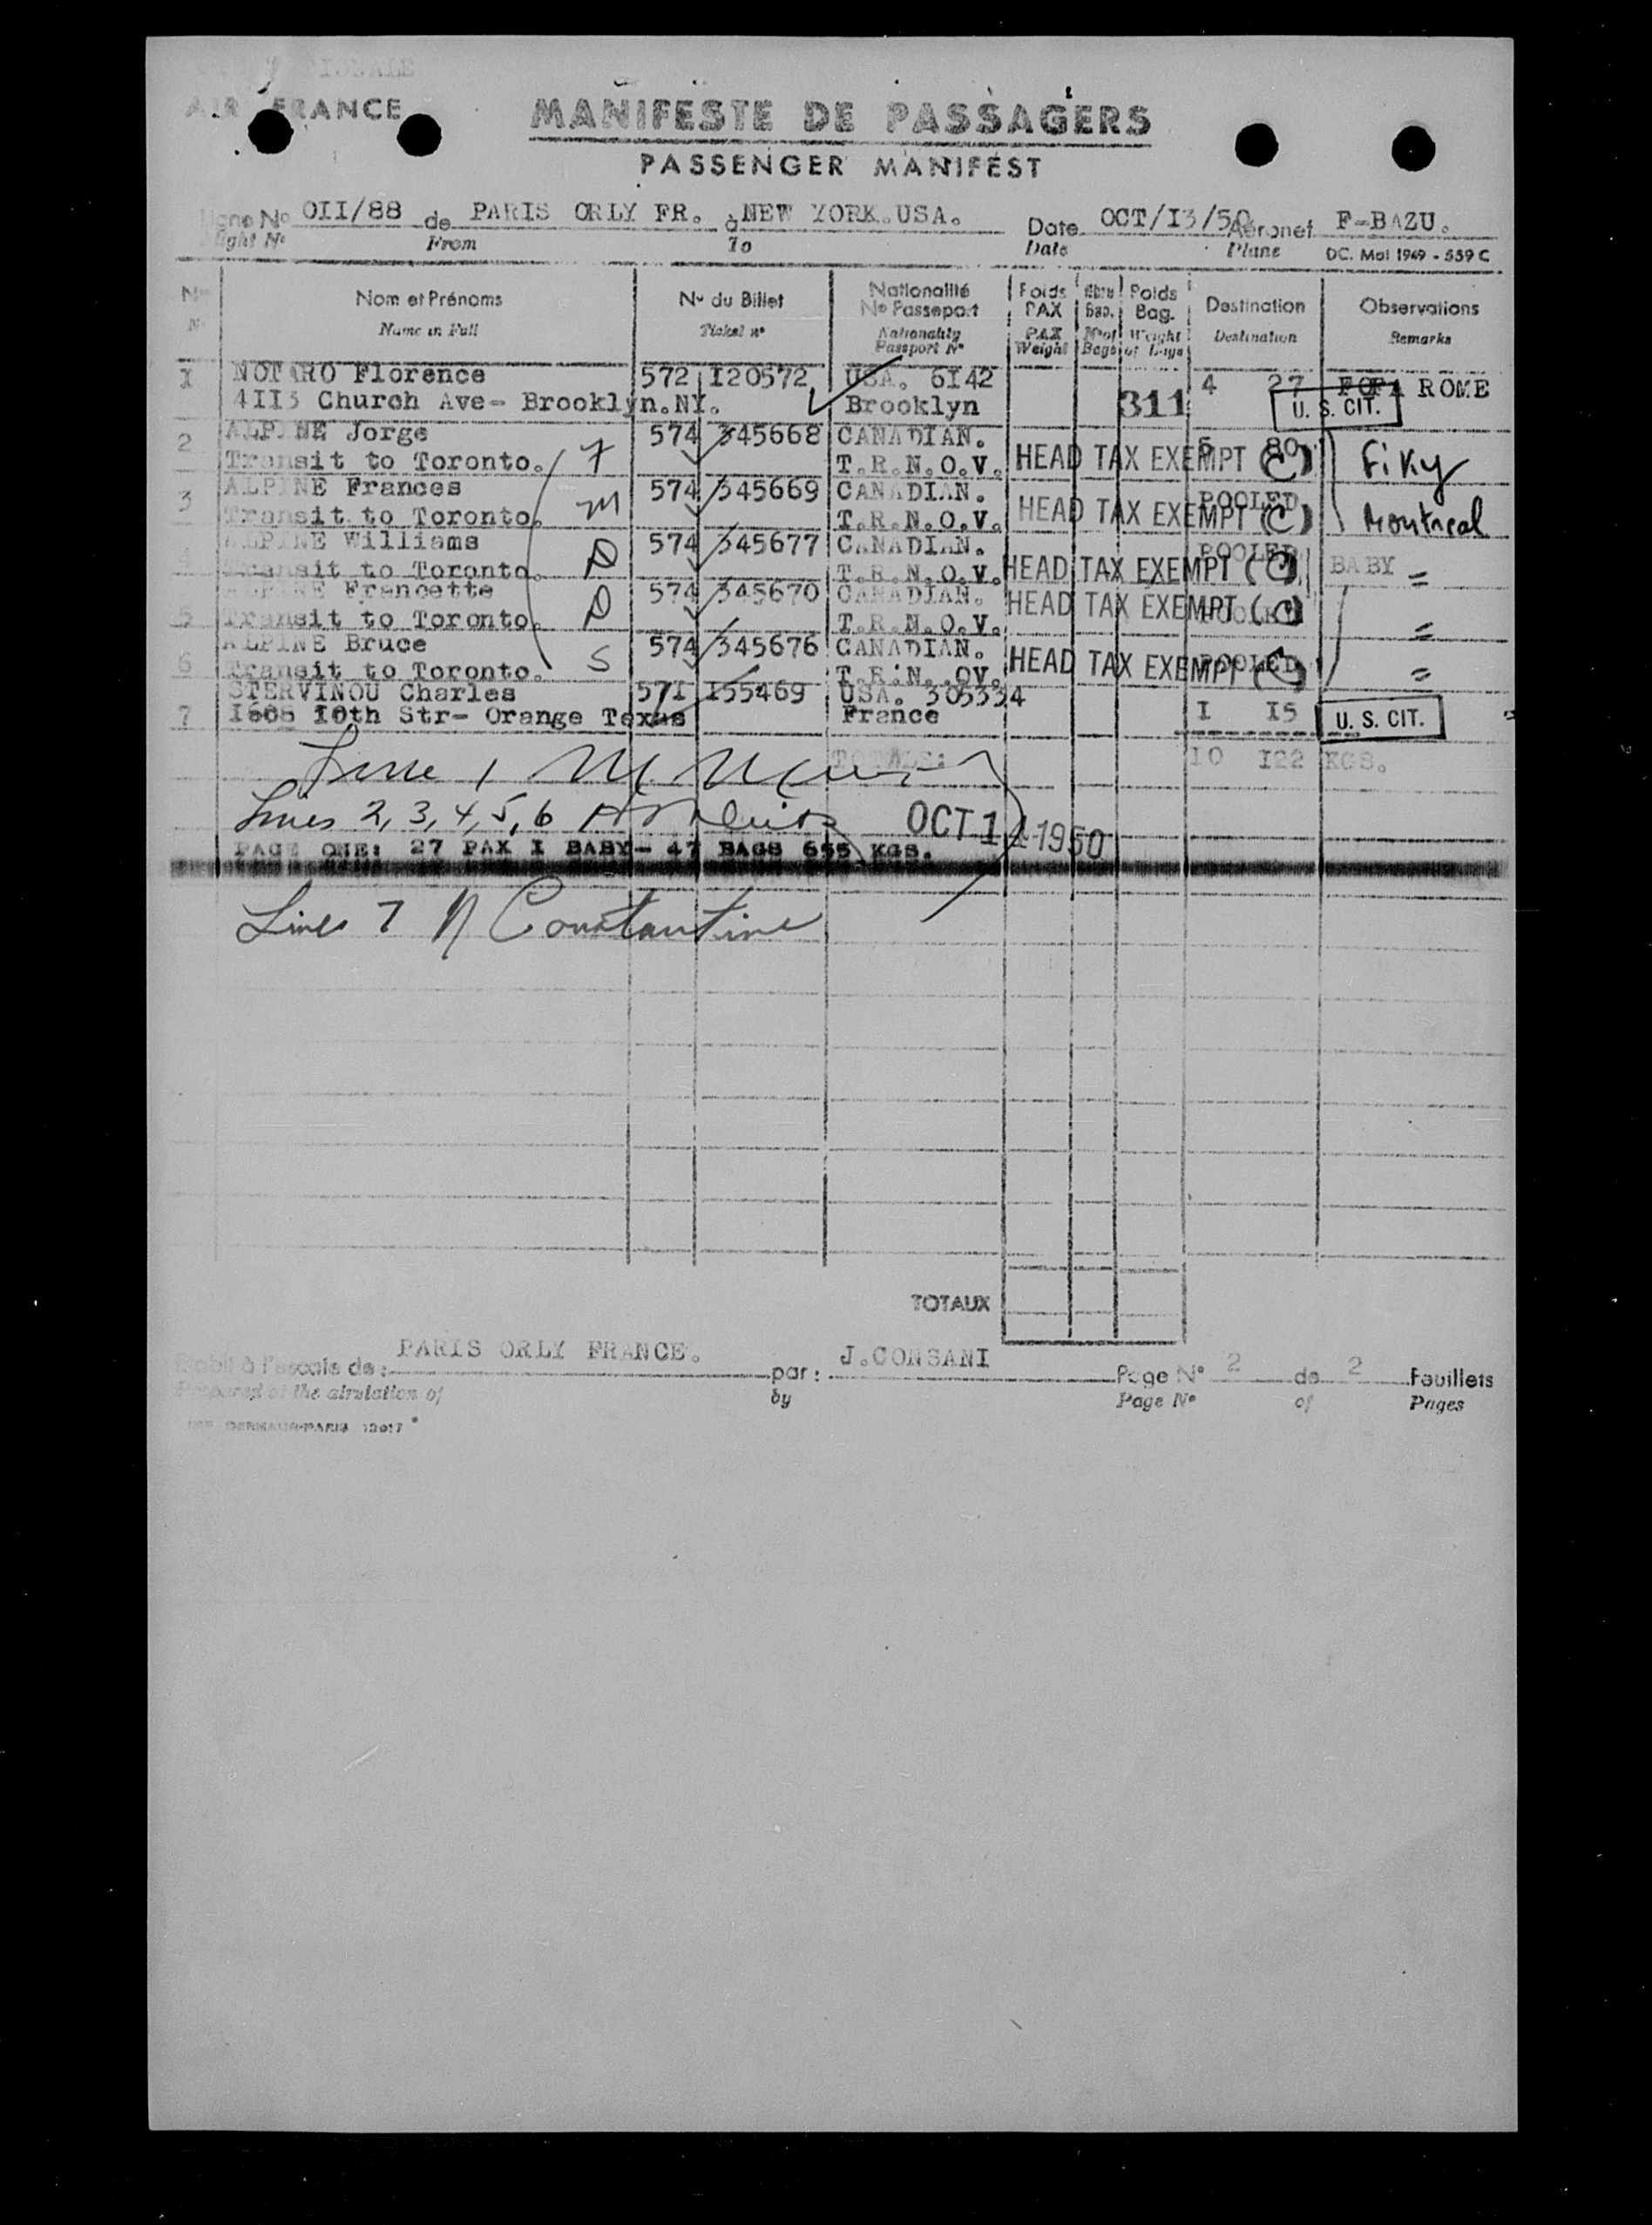 AIR FRANCE
MANIFESTE DE PASSAGERS
PASSENGER MANIFEST
Ligne No OII/88 de PARIS ORLY FR. à NEW YORK.USA. Date OCT/I3/50 Aéronef F-BAZU.
Flight No From To Date Plane DC. Mai 1949 - 559 C
No Nom et Prénoms No du Billet Nationalité No Passeport Poids PAX Nbre Bag. Poids Bag. Destination Observations
No Name in Full Ticket no Nationality Passport No PAX Weight No of Bags Weight of Bags Destination Remarks
1 NOTARO Florence 572 I20572 USA. 6I42 4 27 ROME
4II3 Church Ave- Brooklyn.NY. Brooklyn 311 U. S. CIT.
2 ALPINE Jorge 574 345668 CANADIAN. 5 80
Transit to Toronto. F T.R.N.O.V. HEAD TAX EXEMPT (C) Fiky
3 ALPINE Frances 574 345669 CANADIAN. POOLED
Transit to Toronto. M T.R.N.O.V. HEAD TAX EXEMPT (C) Montreal
4 ALPINE Williams 574 345677 CANADIAN. POOLED
Transit to Toronto. D T.R.N.O.V. HEAD TAX EXEMPT (C) BABY =
ALPINE Francette 574 345670 CANADIAN. HEAD TAX EXEMPT (C)
5 Transit to Toronto. D T.R.N.O.V. POOLED =
ALPINE Bruce 574 345676 CANADIAN.
6 Transit to Toronto. S T.R.N.OV. HEAD TAX EXEMPT (C) POOLED =
STERVINOU Charles 57I I55469 USA. 305334
7 I605 I0th Str- Orange Texas France I I5 U. S. CIT.
Line 1 TOTALS: I0 I22 KGS.
Lines 2, 3, 4, 5, 6 OCT 14 1950
PAGE ONE: 27 PAX I BABY- 47 BAGS 655 KGS.
Lines 7 N Constantine
TOTAUX
Etabli à l'escale de: PARIS ORLY FRANCE. par: J.CONSANI Page No 2 de 2 Feuillets
Prepared at the airstation of by Page No of Pages